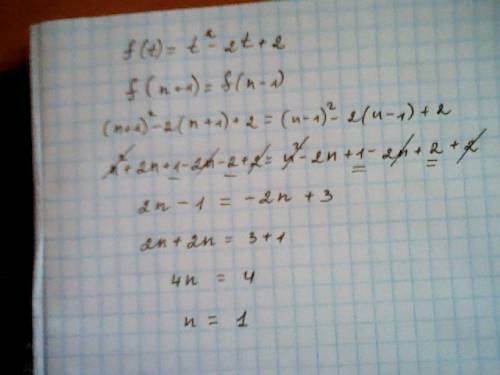 f(t) = t² - 2t + 2
f(n+1) = f(n-1)
(n+1)² - 2(n+1) + 2 = (n-1)² - 2(n-1) + 2
n² + 2n + 1 - 2n - 2 + 2 = n² - 2n + 1 - 2n + 2 + 2
2n - 1 = -2n + 3
2n + 2n = 3 + 1
4n = 4
n = 1